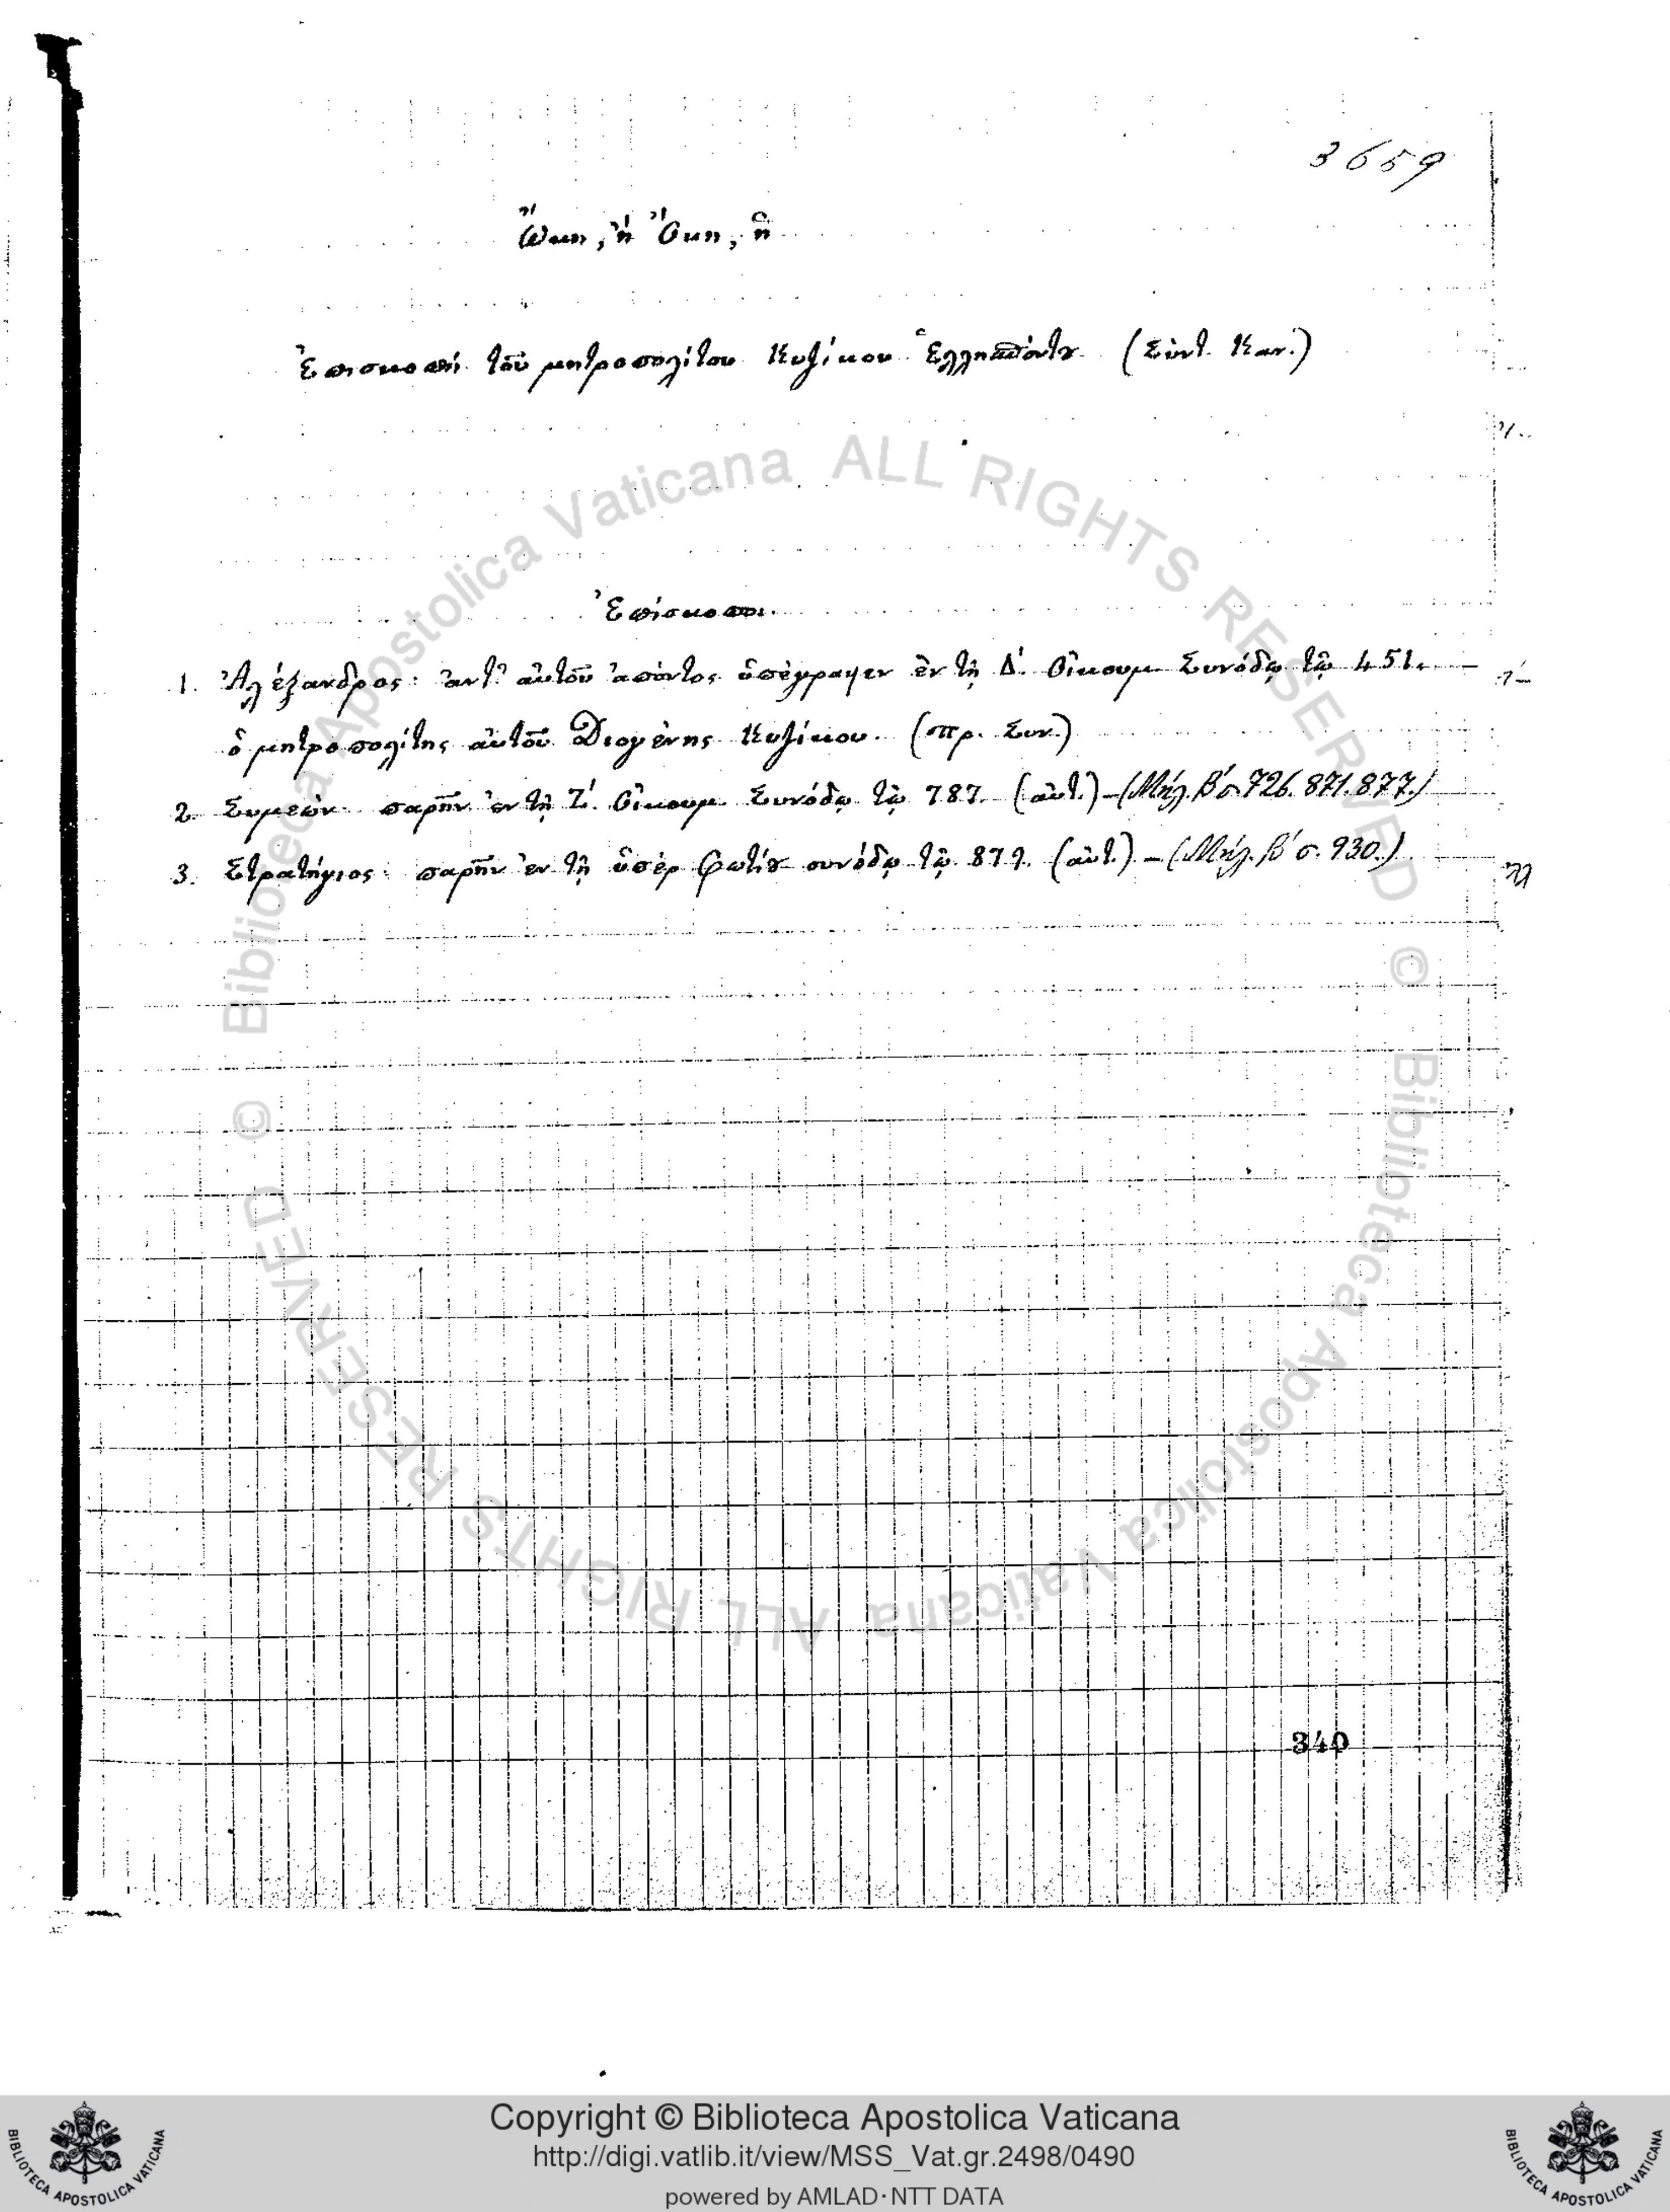 3659
Ὤκη, ἢ Ὄκη, ἡ
Ἐπισκοπὴ τοῦ μητροπολίτου Κυζίκου Ἑλλησπόντου (Σύντ. Καν.)
Ἐπίσκοποι.
1. Ἀλέξανδρος: ἀντ' αὐτοῦ ἀπόντος ὑπέγραψεν ἐν τῇ Δ'. Οἰκουμ. Συνόδῳ τῷ 451. –
ὁ μητροπολίτης αὐτοῦ Διογένης Κυζίκου. (πρ. Συν.)
2. Συμεὼν παρῆν ἐν τῇ Ζ'. Οἰκουμ. Συνόδῳ τῷ 787. (αὐτ.) – (Μάγ. β' σ. 726. 871. 877.)
3. Στρατήγιος: παρῆν ἐν τῇ ὑπὲρ Φωτίου συνόδῳ τῷ 879. (αὐτ.) – (Μάγ. β' σ. 930.)
340
© Biblioteca Apostolica Vaticana ALL RIGHTS RESERVED
© Biblioteca Apostolica Vaticana ALL RIGHTS RESERVED
Copyright © Biblioteca Apostolica Vaticana
http://digi.vatlib.it/view/MSS_Vat.gr.2498/0490
powered by AMLAD·NTT DATA
BIBLIOTECA APOSTOLICA VATICANA
BIBLIOTECA APOSTOLICA VATICANA